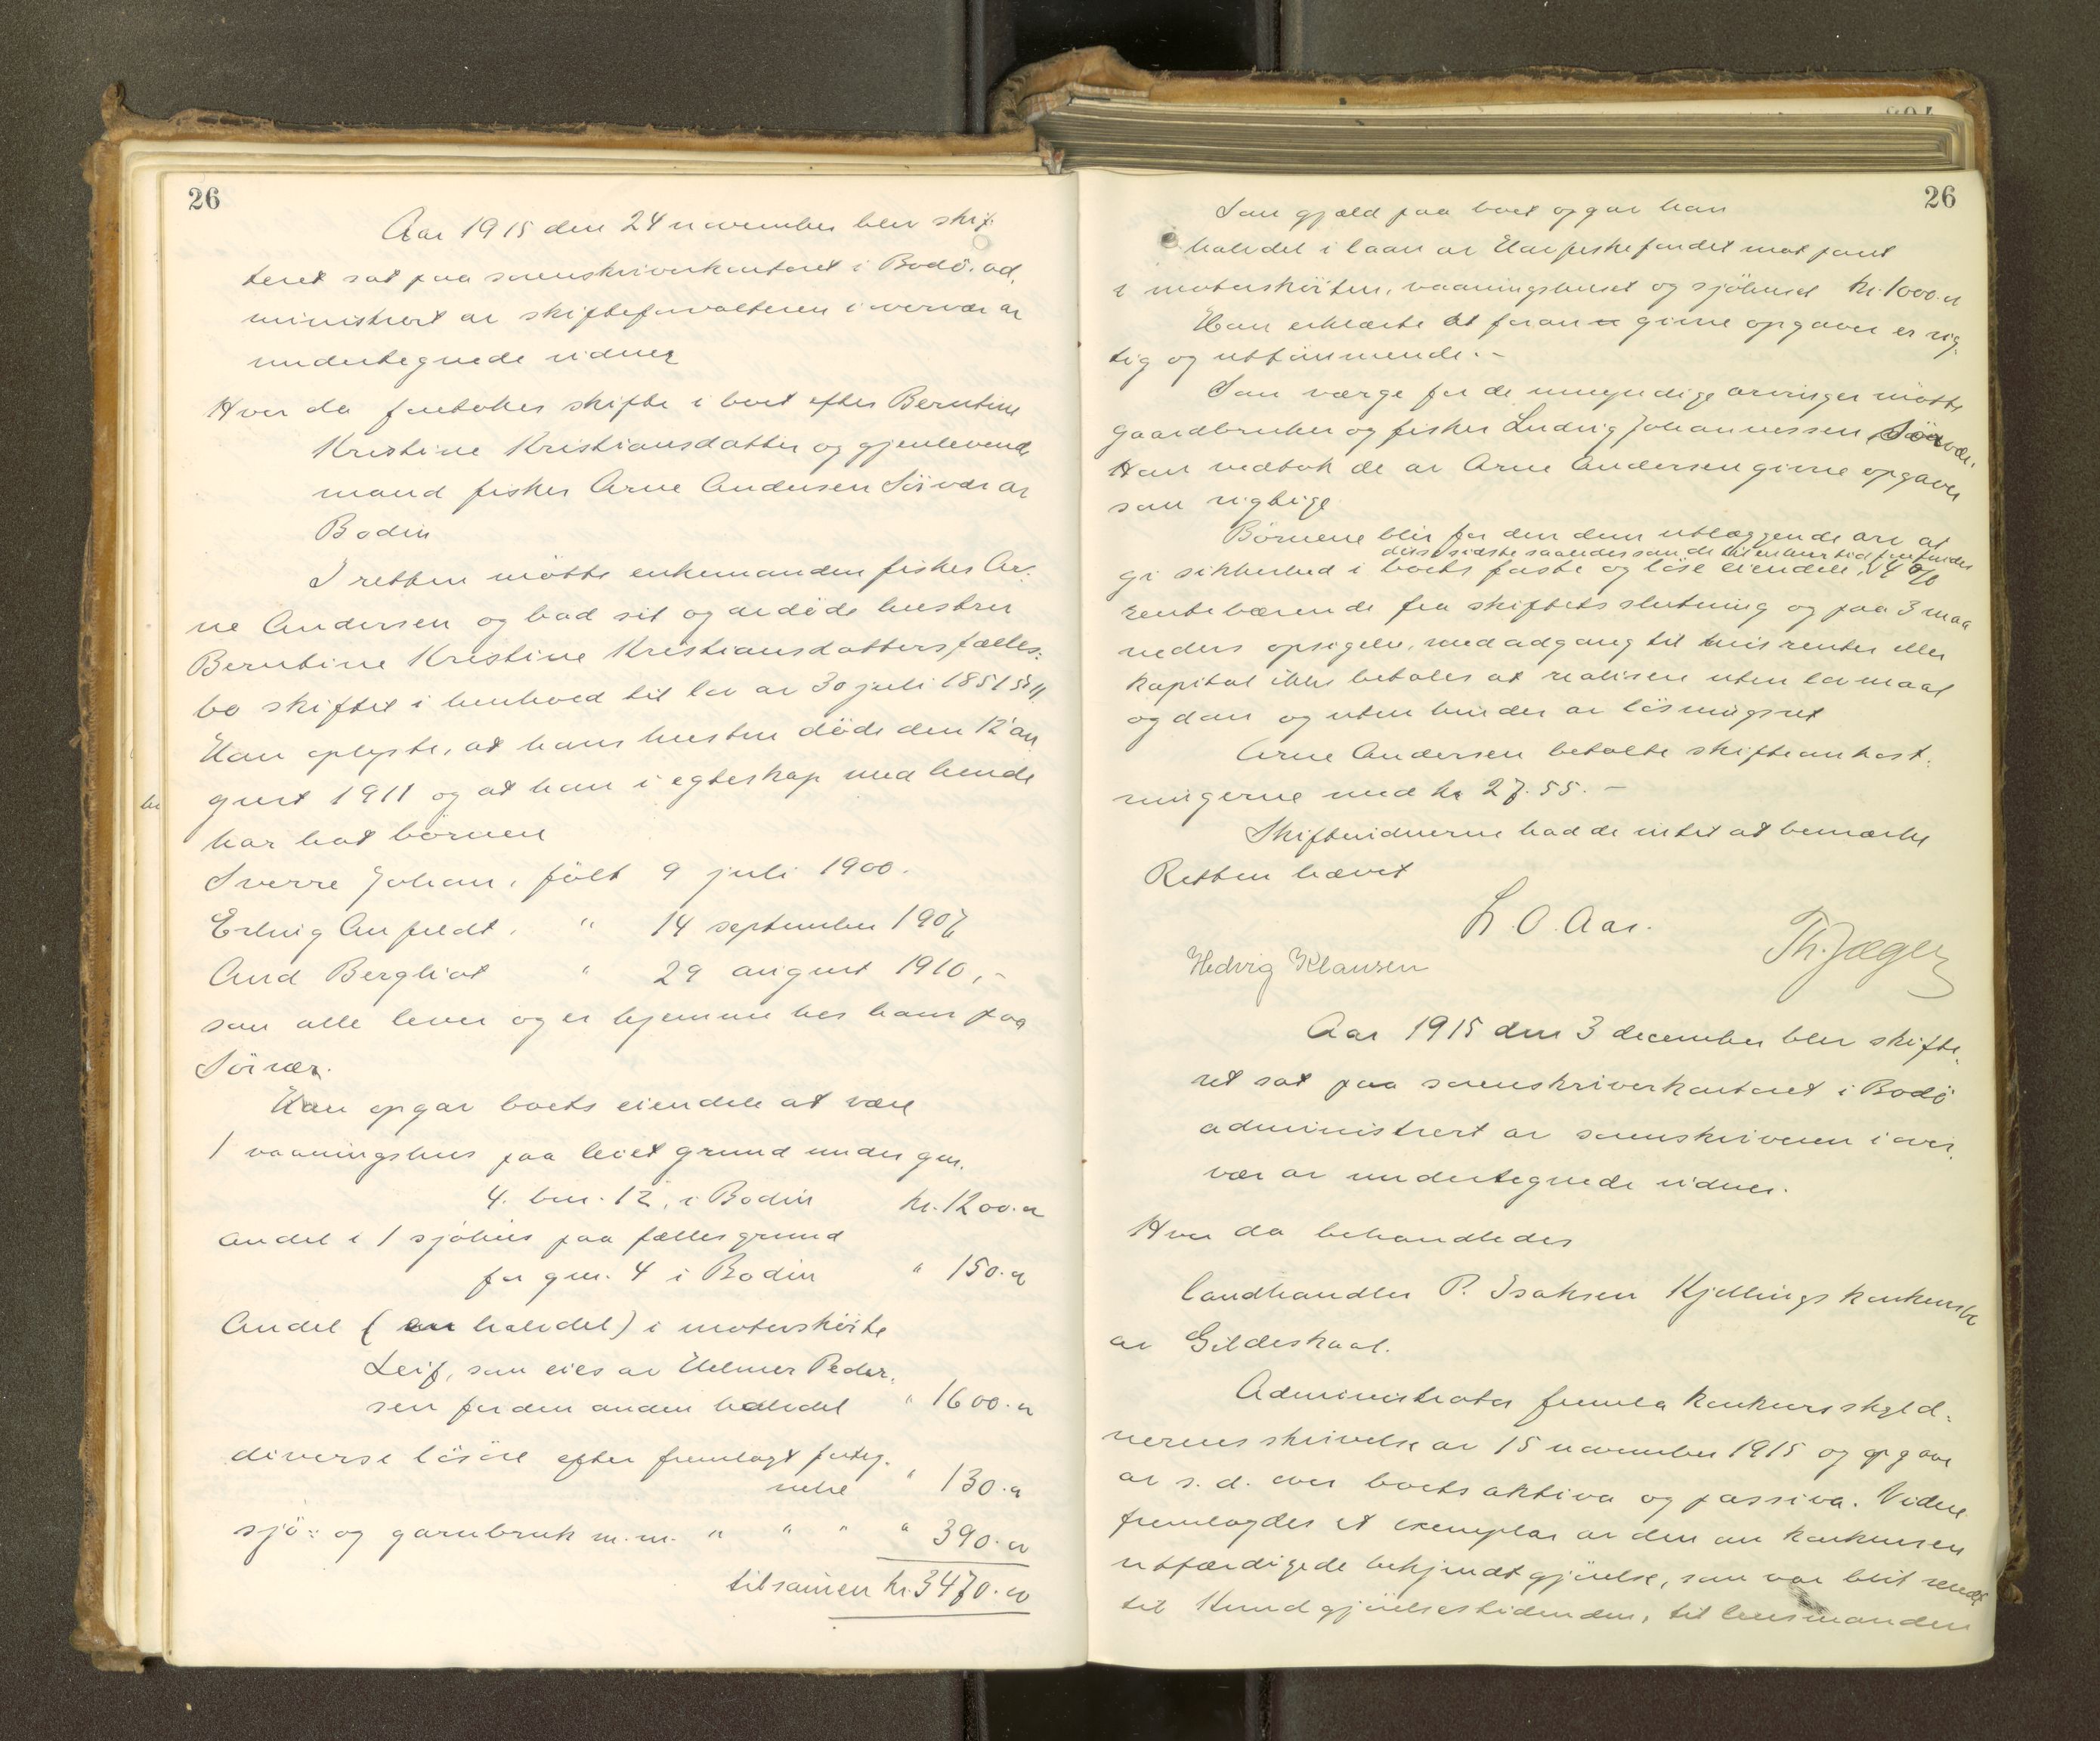 26
Aar 1915 den 24 november blev skif-
teret sat paa sorenskriverkontoret i Bodö, ad-
ministrert av skifteforvalteren i overvær av
undertegnede vidner
Hvor da foretokes skifte i boet efter Berntine
Kristine Kristiansdatter og gjenlevende
mand fisker Arne Andersen Sörvær av
Bodin
I retten mötte enkemanden fisker Ar-
ne Andersen og bad sit og avdöde hustru
Berntine Kristine Kristiansdatters fælles-
bo skiftet i henhold til lov av 30 juli 1851 § 11
Han oplyste, at hans hustru döde den 12 au-
gust 1911 og at han i egteskap med hende
har hat börnene
Sverre Johan, född 9 juli 1900.
Erling Anfeldt, " 14 september 1907
Aud Bergliot " 29 august 1910,-
som alle lever og er hjemme hos ham paa
Sörvær.
Han opgav boets eiendele at være
1 vaaningshus paa leiet grund under gnr.
4. bnr. 12, i Bodin kr. 1200.00
andel i 1 sjöhus paa fællesgrund
for gnr. 4 i Bodin " 150.00
Andel (en halvdel) i motorskøite
Leif, som eies av Helmer Peder-
sen for den anden halvdel " 1600.00
diverse lösöre efter fremlagt forteg-
nelse " 130.00
sjö- og garnbruk m.m. " " " " 390.00
tilsammen kr. 3470.00
26
Som gjæld paa boet opgav han
halvdel i laan av Havfiskefondet mot pant
i motorskøiten, vaaningshuset og sjöhuset kr. 1000.00
Han erklærte at foran givne opgaver er rig-
tig og uttömmende.-
Som værge for de umyndige arvinger mötte
gaardbruker og fisker Ludvig Johannessen, Sörvær.
Han vedtok de av Arne Andersen givne opgaver
som rigtige
Börnene blir for den dem utlæggende arv at
disse sidste saaledes som de til enhver tid forefindes
gi sikkerhed i boets faste og löse eiendele, 4 %
rentebærende fra skiftets slutning og paa 3 maa
neders opsigelse, med adgang til hvis renter eller
kapital ikke betales at realisere uten lovmaal
og dom og uten hinder av lösningsret
Arne Andersen betalte skifteomkost-
ningerne med kr 27.55.-
Skiftevidnerne hadde intet at bemærke
Retten hævet
L. O. Aar.
Hedvig Klausen Th. Jæger
Aar 1915 den 3 december blev skifte-
ret sat paa sorenskriverkontoret i Bodö
administrert av sorenskriveren i over-
vær av undertegnede vidner.
Hvor da behandledes
landhandler P. Isaksen Kjellings konkursbo
av Gildeskaal.
Administrator fremla konkursskyld-
nerens skrivelse av 15 november 1915 og opgave
av s. d. over boets aktiva og passiva. Videre
fremlagdes et exemplar av den om konkursen
utfærdigede bekjendtgjörelse, som var blit sendt
til Kundgjörelsestidenden, til lensmanden